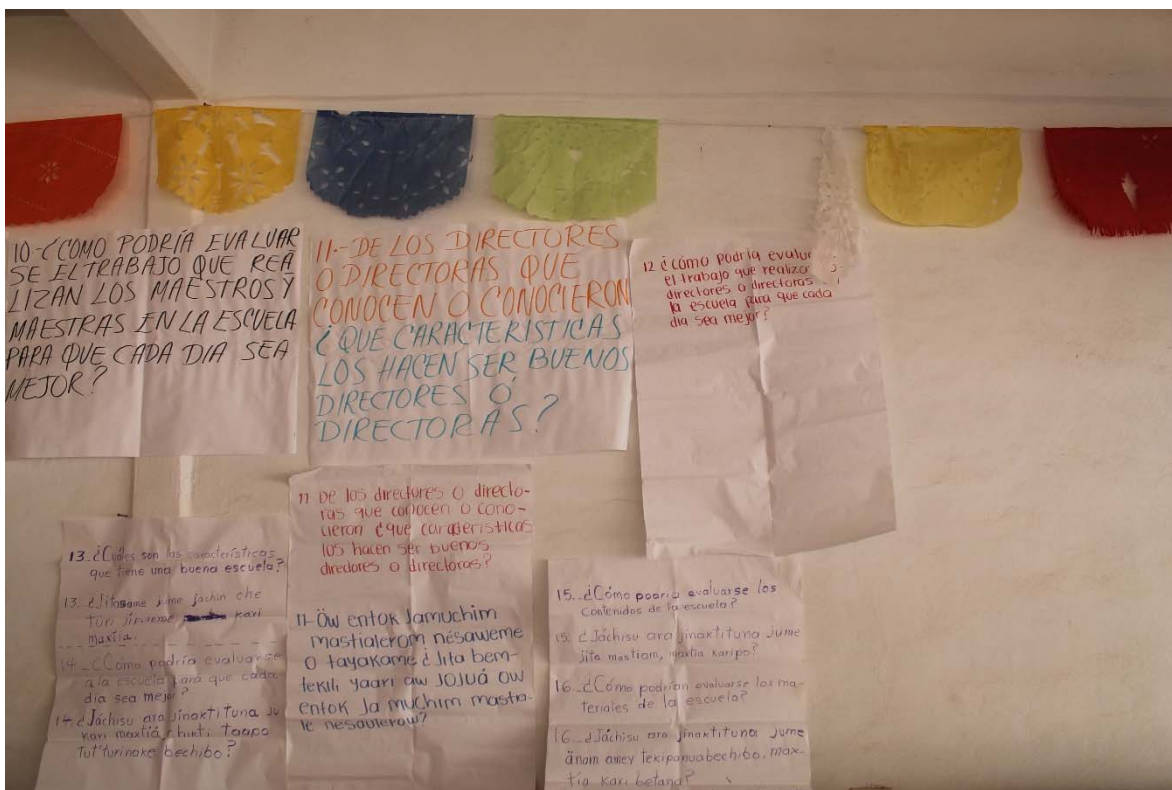 10-¿COMO PODRÍA EVALUAR
SE EL TRABAJO QUE REA
LIZAN LOS MAESTROS Y
MAESTRAS EN LA ESCUELA
PARA QUE CADA DIA SEA
MEJOR?
11.-DE LOS DIRECTORES
O DIRECTORAS QUE
CONOCEN O CONOCIERON
¿QUE CARACTERISTICAS
LOS HACEN SER BUENOS
DIRECTORES Ó
DIRECTORAS?
12 ¿cómo podría evaluar
el trabajo que realizan
directores o directoras
la escuela para que cada
dia sea mejor?
13. ¿Cuáles son las características
que tiene una buena escuela?
13. ¿Jitasame jume jachin che
türi jinieme kari
maxtia.
14.-¿Cómo podría evaluarse
a la escuela para que cada
dia sea mejor?
14 ¿Jáchisu ara jinaktituna ju
kari maxtiá chikti taapo
tut'turinake bechibo?
11 De los directores o directo-
ras que conocen o cono-
cieron ¿que caracteristicas
los hacen ser buenos
directores o directoras?
11-Öw entok Jamuchim
mastialerom nésaweme
o tayakame ¿Jita bem-
tekili yaari aw JOJUÁ OW
entok Ja muchim mastia-
le nesaulerow?
15..¿Cómo podría evaluarse los
contenidos de la escuela?
15. ¿Jáchisu ara jinaktituna jume
jita mastiam, maxtia karipo?
16..¿Cómo podrían evaluarse los ma-
teriales de la escuela?
16..¿Jáchisu ara jinaktituna jume
änam amey tekipanuabechibo, max-
tia kari betana?